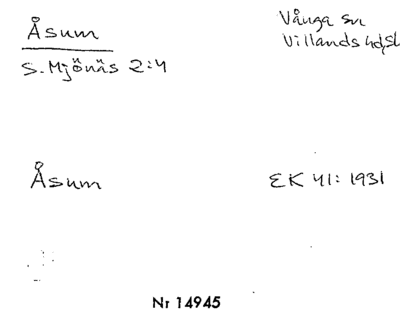 Åsum
Vånga sn
Villands hd, Sk
S. Mjönäs 2:4
Åsum
EK 41: 1931
Nr 14945